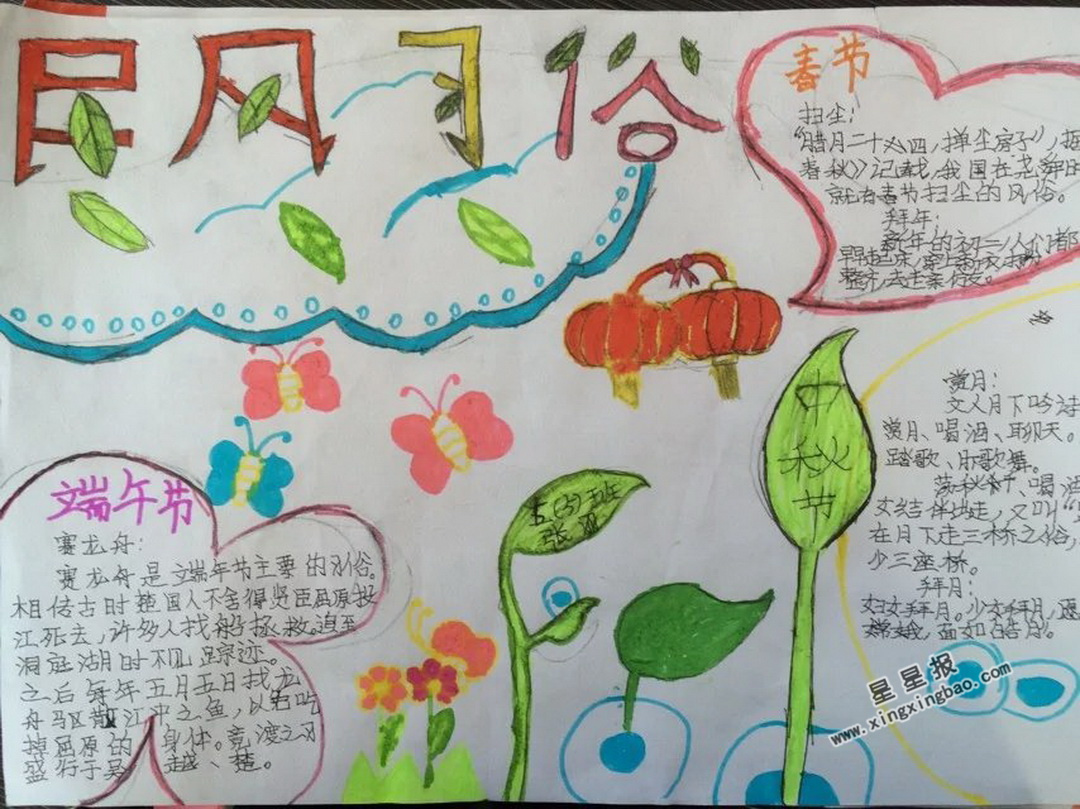 民风习俗
春节
扫尘：
“腊月二十四，掸尘房子》，据
春秋》记载，我国在尧舜时
就有春节扫尘的风俗。
拜年：
新年的初一，人们都
早早起床，穿上新衣，打扮
整齐，去走亲访友。
中秋节
赏月：
文人月下吟诗
赏月、喝酒、聊天。
踏歌、歌舞。
喝酒
妇女结伴 走，又叫“
在月下走三桥之俗，
少三座桥。
拜月：
妇女拜月。少女拜月，愿
嫦娥，面如皓月。
五(3)班
张
端午节
赛龙舟：
赛龙舟是端午节主要的习俗。
相传古时楚国人不舍得贤臣屈原投
江死去，许多人找船拯救。追至
洞庭湖时不见踪迹。
之后每年五月五日找龙
舟驱散江中之鱼，以免吃
掉屈原的身体。竞渡之习
盛行于吴、越、楚。
星星报
www.xingxingbao.com